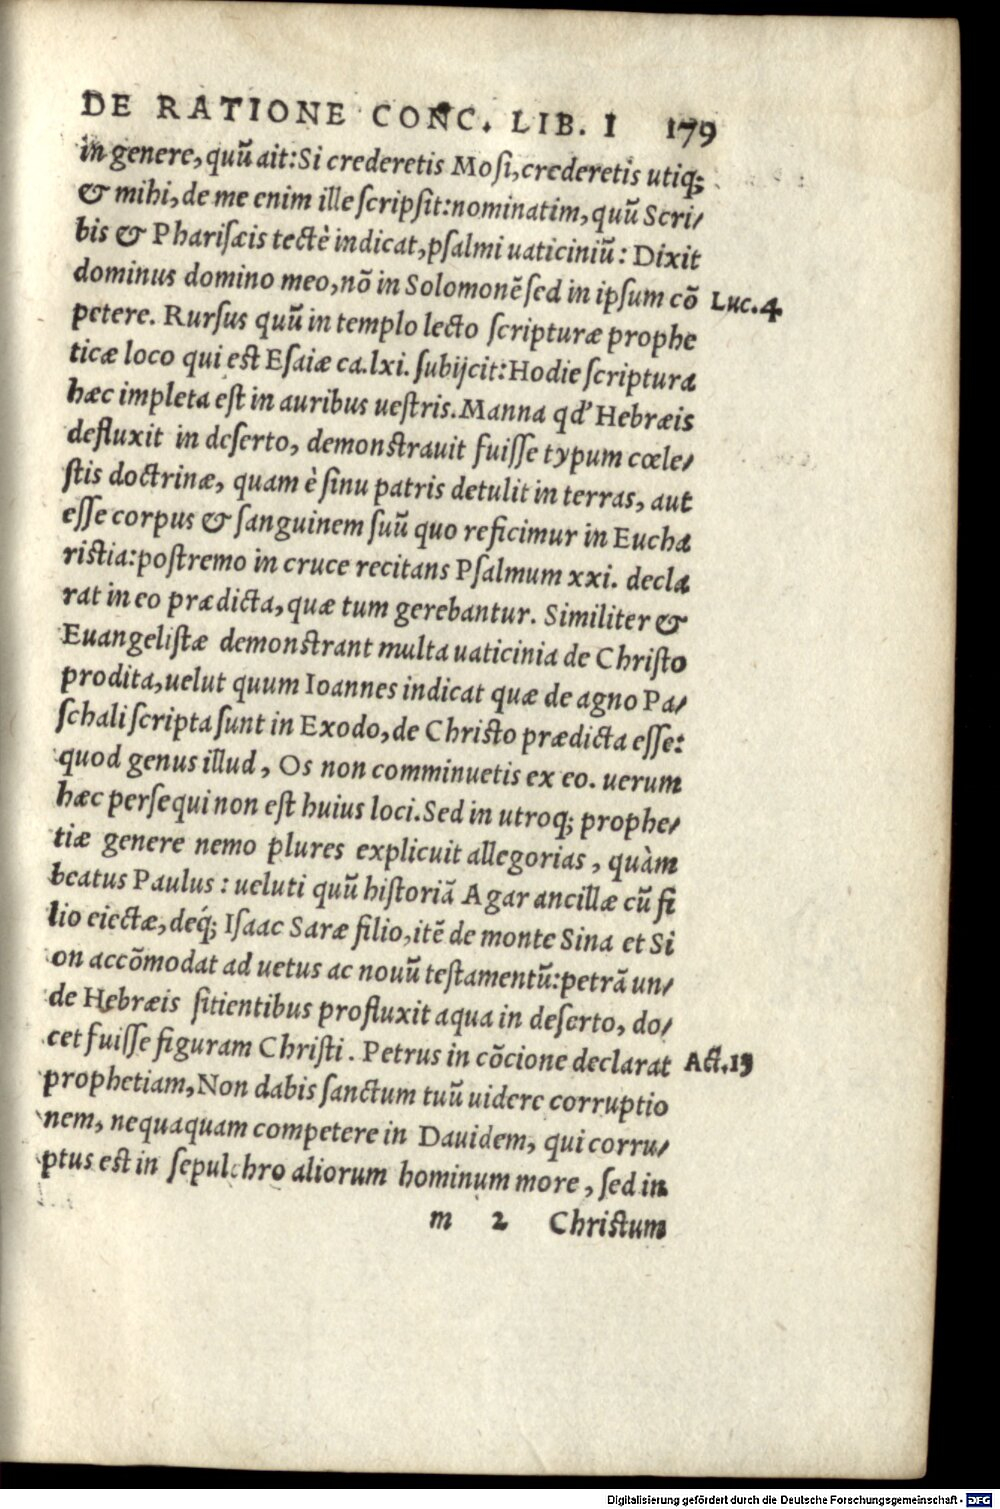 DE RATIONE CONC. LIB. I 179
in genere, quũ ait: Si crederetis Mosi, crederetis utiq;
& mihi, de me enim ille scripsit: nominatim, quũ Scri/
bis & Pharisæis tectè indicat, psalmi uaticiniũ: Dixit
dominus domino meo, nõ in Solomonẽ sed in ipsum cõ
Luc. 4
petere. Rursus quũ in templo lecto scripturæ prophe
ticæ loco qui est Esaiæ ca. lxi. subijcit: Hodie scriptura
hæc impleta est in auribus uestris. Manna qd' Hebræis
defluxit in deserto, demonstrauit fuisse typum cœle/
stis doctrinæ, quam è sinu patris detulit in terras, aut
esse corpus & sanguinem suũ quo reficimur in Eucha
ristia: postremo in cruce recitans Psalmum xxi. decla
rat in eo prædicta, quæ tum gerebantur. Similiter &
Euangelistæ demonstrant multa uaticinia de Christo
prodita, uelut quum Ioannes indicat quæ de agno Pa/
schali scripta sunt in Exodo, de Christo prædicta esse:
quod genus illud, Os non comminuetis ex eo. uerum
hæc persequi non est huius loci. Sed in utroq; prophe/
tiæ genere nemo plures explicuit allegorias, quàm
beatus Paulus: ueluti quũ historiã Agar ancillæ cũ fi
lio eiectæ, deq́; Isaac Saræ filio, itẽ de monte Sina et Si
on accõmodat ad uetus ac nouũ testamentũ: petrã un/
de Hebræis sitientibus profluxit aqua in deserto, do/
cet fuisse figuram Christi. Petrus in cõcione declarat
Act. 13
prophetiam, Non dabis sanctum tuũ uidere corruptio
nem, nequaquam competere in Dauidem, qui corru/
ptus est in sepulchro aliorum hominum more, sed in
m 2 Christum
Digitalisierung gefördert durch die Deutsche Forschungsgemeinschaft - DFG